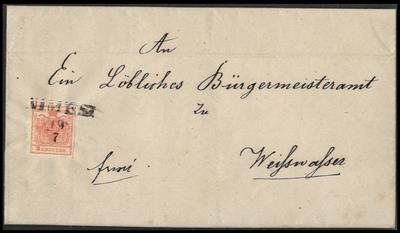 An
Ein Löbliches Bürgermeisteramt
zu
19
7
3 KREUZER
Weisswasser